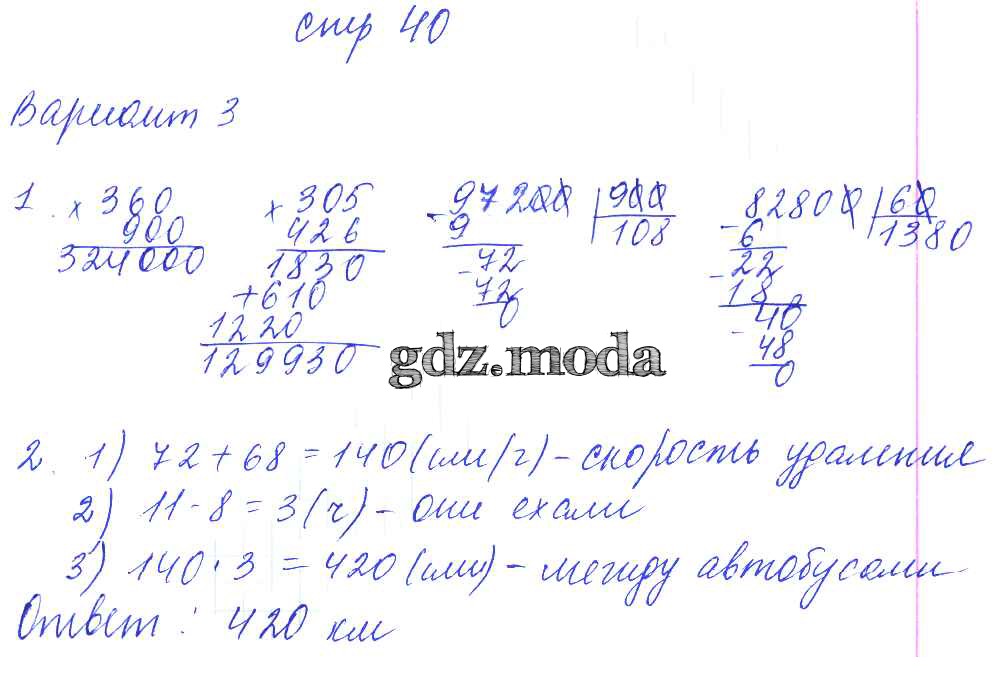 стр 40
Вариант 3
1. × 360 × 305 - 97200 | 900 - 82800 | 60
900 426 9 108 6 1380
324000 1830 - 72 - 22
+ 610 72 18
1220 0 - 40
129930 48
0
gdz.moda
2. 1) 72 + 68 = 140 (км/ч) - скорость удаления
2) 11 - 8 = 3 (ч) - они ехали
3) 140 · 3 = 420 (км) - между автобусами
Ответ: 420 км